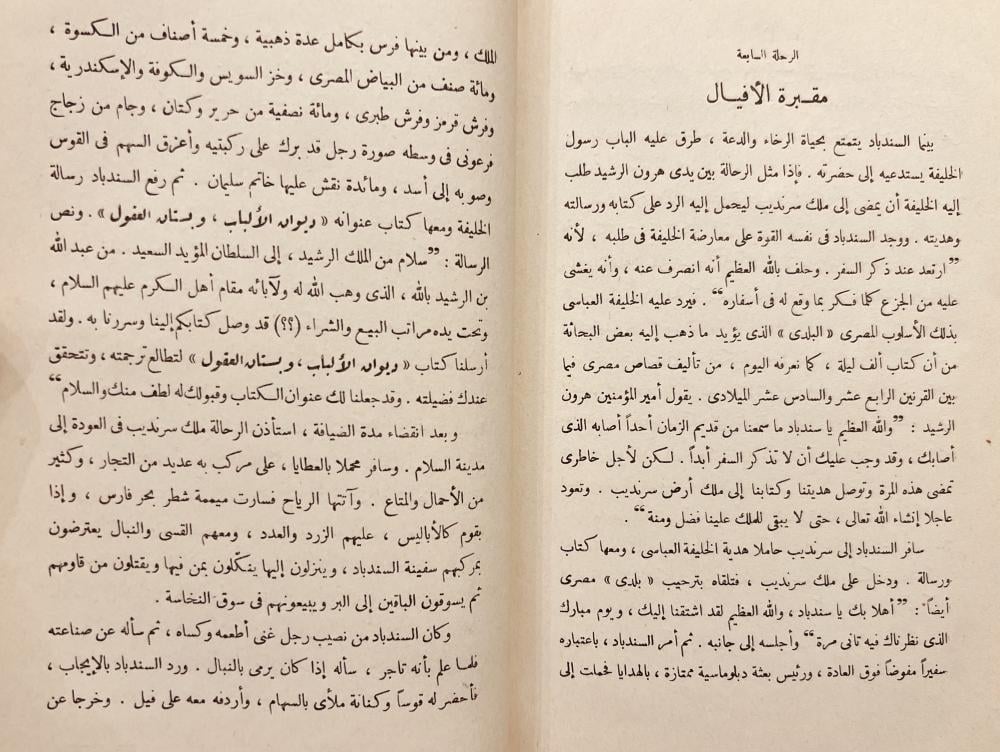 الرحلة السابعة
مقبرة الأفيال
بينما السندباد يتمتع بحياة الرخاء والدعة ، طرق عليه الباب رسول
الخليفة يستدعيه إلى حضرته . فإذا مثل الرحالة بين يدى هرون الرشيد طلب
إليه الخليفة أن يمضى إلى ملك سرنديب ليحمل إليه الرد على كتابه ورسالته
وهديته . ووجد السندباد فى نفسه القوة على معارضة الخليفة فى طلبه ، لأنه
”ارتعد عند ذكر السفر . وحلف بالله العظيم أنه انصرف عنه ، وأنه يغشى
عليه من الجزع كلما فكر بما وقع له فى أسفاره“ . فيرد عليه الخليفة العباسى
بذلك الأسلوب المصرى « البلدى » الذى يؤيد ما ذهب إليه بعض البحاثة
من أن كتاب ألف ليلة ، كما نعرفه اليوم ، من تأليف قصاص مصرى فيما
بين القرنين الرابع عشر والسادس عشر الميلادى . يقول أمير المؤمنين هرون
الرشيد : ”والله العظيم يا سندباد ما سمعنا من قديم الزمان أحداً أصابه الذى
أصابك ، وقد وجب عليك أن لا تذكر السفر أبداً . لكن لأجل خاطرى
تمضى هذه المرة وتوصل هديتنا وكتابنا إلى ملك أرض سرنديب . وتعود
عاجلا إنشاء الله تعالى ، حتى لا يبقى للملك علينا فضل ومنة“ .
سافر السندباد إلى سرنديب حاملا هدية الخليفة العباسى ، ومعها كتاب
ورسالة . ودخل على ملك سرنديب ، فتلقاه بترحيب « بلدى » مصرى
أيضاً : ”أهلا بك يا سندباد ، والله العظيم لقد اشتقنا إليك ، ويوم مبارك
الذى نظرناك فيه تانى مرة“ وأجلسه إلى جانبه . ثم أمر السندباد ، باعتباره
سفيراً مفوضاً فوق العادة ، ورئيس بعثة دبلوماسية ممتازة ، بالهدايا فحملت إلى
الملك ، ومن بينها فرس بكامل عدة ذهبية ، وخمسة أصناف من الكسوة ،
ومائة صنف من البياض المصرى ، وخز السويس والكوفة والإسكندرية ،
وفرش قرمز وفرش طبرى ، ومائة نصفية من حرير وكتان ، وجام من زجاج
فرعونى فى وسطه صورة رجل قد برك على ركبتيه وأعزق السهم فى القوس
وصوبه إلى أسد ، ومائدة نقش عليها خاتم سليمان . ثم رفع السندباد رسالة
الخليفة ومعها كتاب عنوانه « ديوان الألباب ، وبستان العقول » . ونص
الرسالة : ”سلام من الملك الرشيد ، إلى السلطان المؤيد السعيد . من عبد الله
بن الرشيد بالله ، الذى وهب الله له ولآبائه مقام أهل الكرم عليهم السلام ،
وتحت يده مراتب البيع والشراء (؟؟) قد وصل كتابكم إلينا وسررنا به . ولقد
أرسلنا كتاب « ديوان الألباب ، وبستان العقول » لتطالع ترجمته ، وتتحقق
عندك فضيلته . وقد جعلنا لك عنوان الكتاب وقبولك له لطف منك والسلام“
وبعد انقضاء مدة الضيافة ، استأذن الرحالة ملك سرنديب فى العودة إلى
مدينة السلام . وسافر محملا بالعطايا ، على مركب به عديد من التجار ، وكثير
من الأحمال والمتاع . وآتتها الرياح فسارت ميممة شطر بحر فارس ، وإذا
بقوم كالأباليس ، عليهم الزرد والعدد ، ومعهم القسى والنبال يعترضون
بمركبهم سفينة السندباد ، وينزلون إليها ينكّلون بمن فيها ويقتلون من قاومهم
ثم يسوقون الباقين إلى البر ويبيعونهم فى سوق النخاسة .
وكان السندباد من نصيب رجل غنى أطعمه وكساه ، ثم سأله عن صناعته
فلما علم بأنه تاجر ، سأله إذا كان يرمى بالنبال . ورد السندباد بالإيجاب ،
فأحضر له قوساً وكنانة ملأى بالسهام ، وأردفه معه على فيل . وخرجا عن